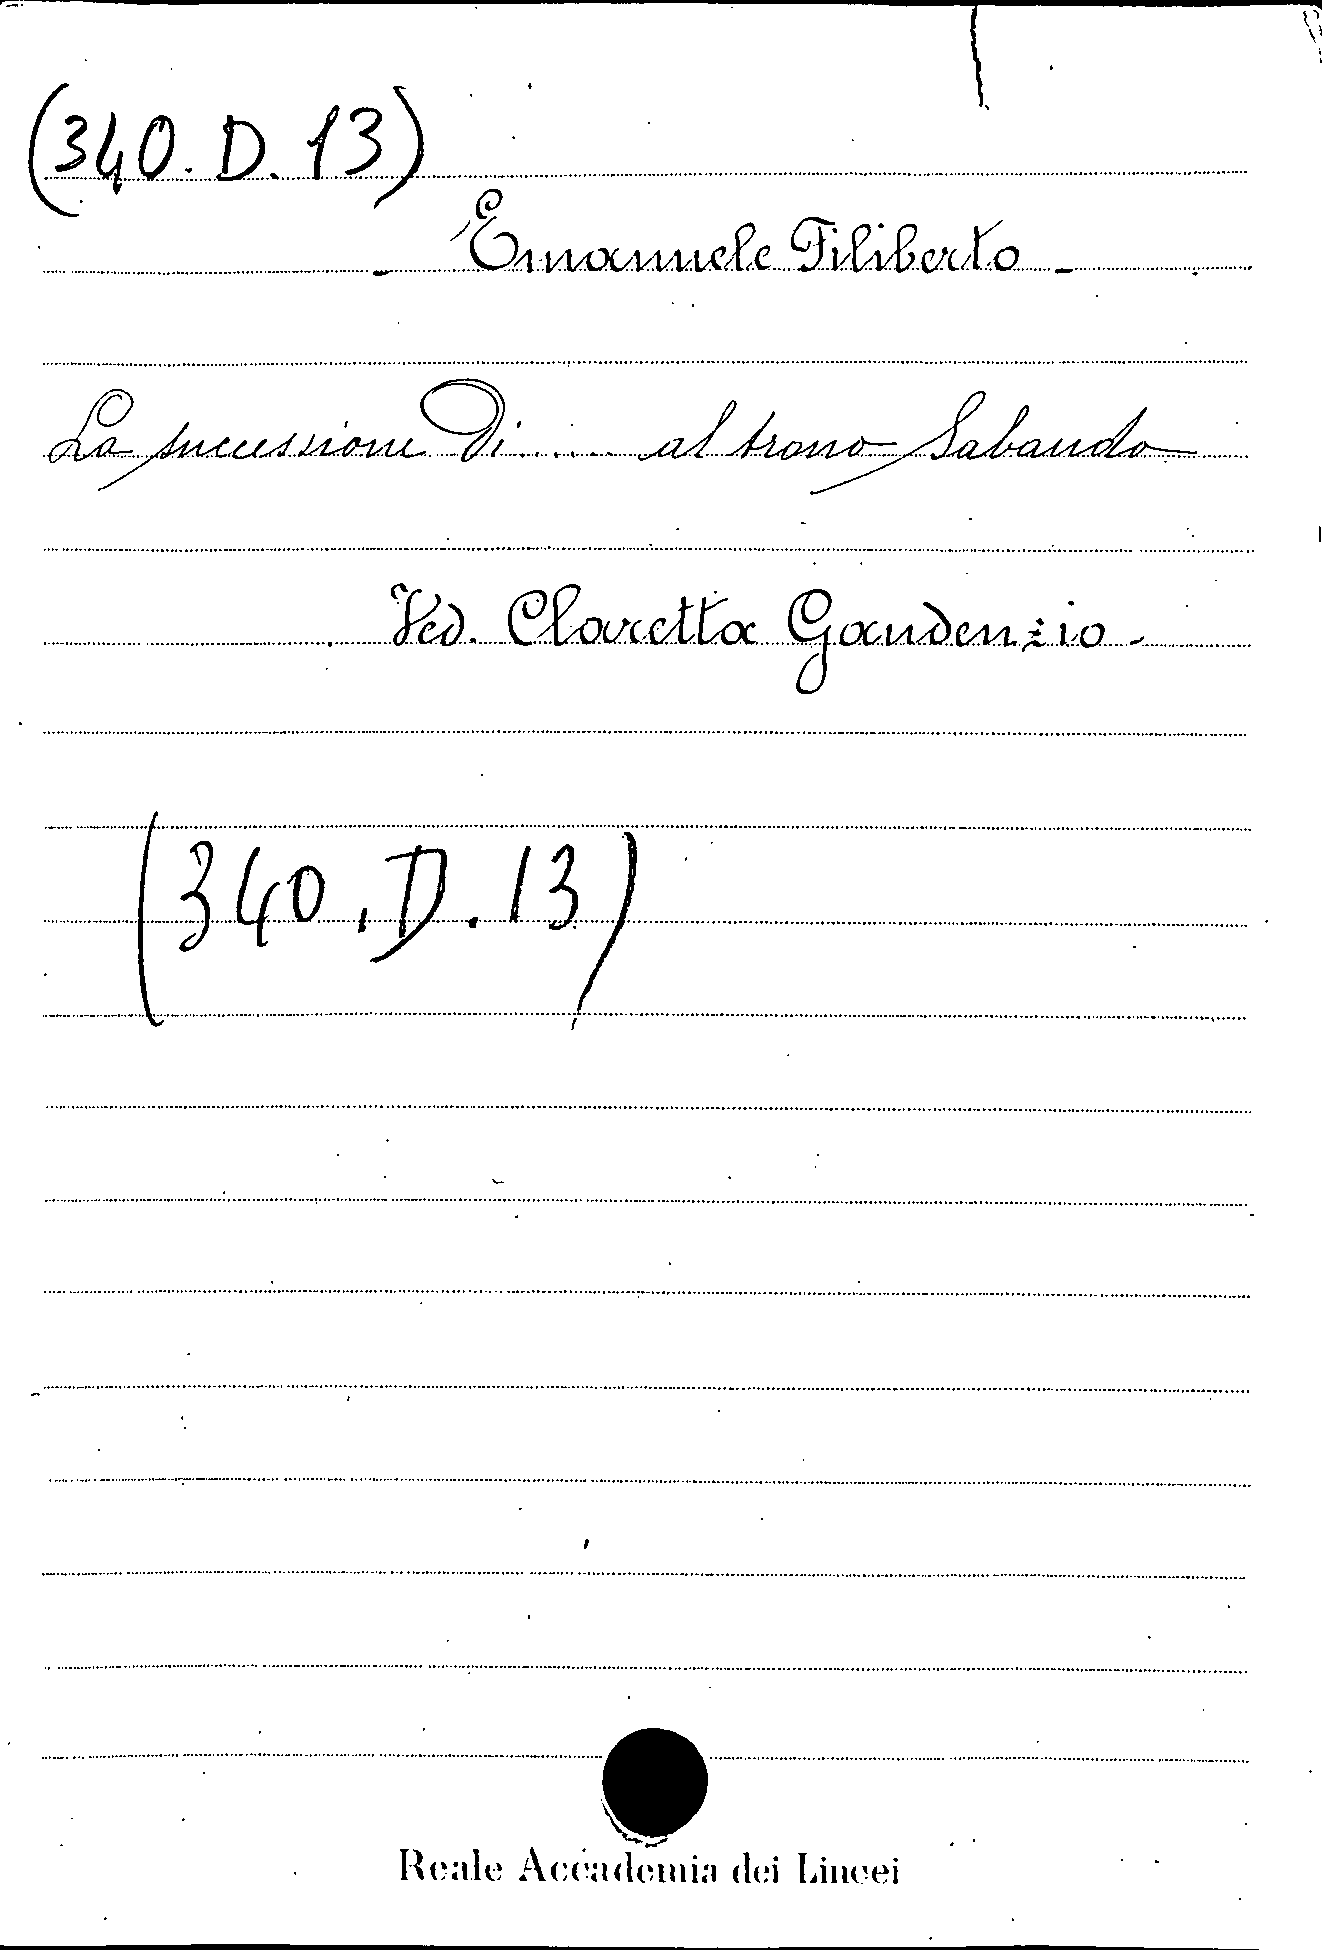 (340. D. 13)
- Emanuele Filiberto -
La successione di ..... al trono Sabaudo
Ved. Claretta Gaudenzio -
(340. D. 13)
Reale Accademia dei Lincei